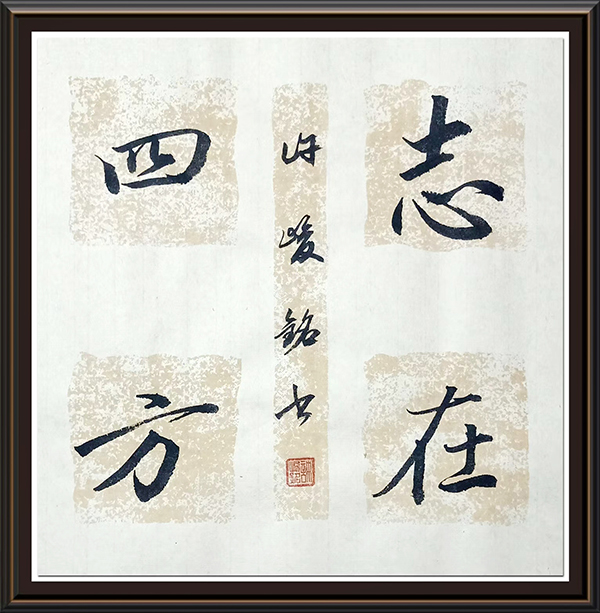 志在
四方
许峻铭书